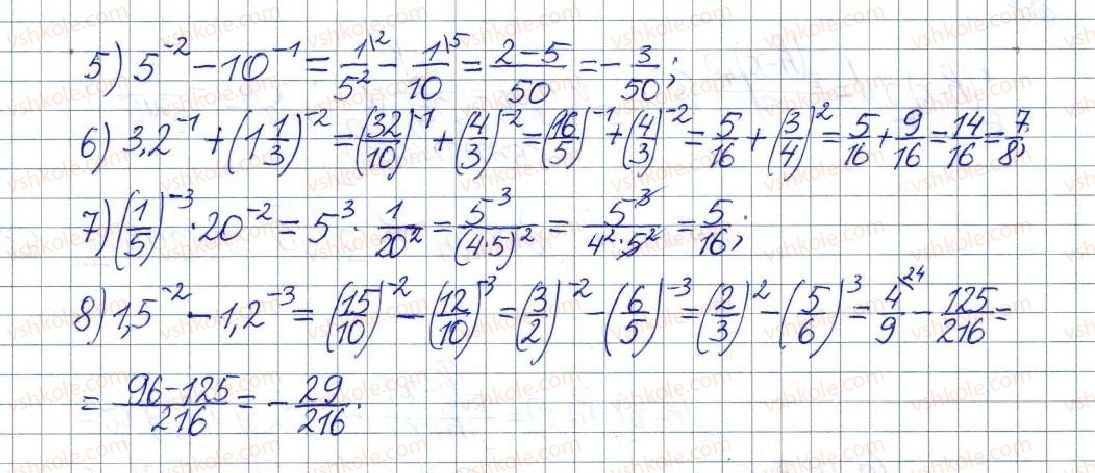 5) 5⁻² − 10⁻¹ = 1\²/5² − 1\⁵/10 = (2−5)/50 = −3/50;
6) 3,2⁻¹ + (1 1/3)⁻² = (32/10)⁻¹ + (4/3)⁻² = (16/5)⁻¹ + (4/3)⁻² = 5/16 + (3/4)² = 5/16 + 9/16 = 14/16 = 7/8;
7) (1/5)⁻³ · 20⁻² = 5³ · 1/20² = 5⁻³/(4·5)² = 5⁻³/(4²·5²) = 5/16;
8) 1,5⁻² − 1,2⁻³ = (15/10)⁻² − (12/10)⁻³ = (3/2)⁻² − (6/5)⁻³ = (2/3)² − (5/6)³ = 4\²⁴/9 − 125/216 =
= (96−125)/216 = −29/216.
vshkole.com